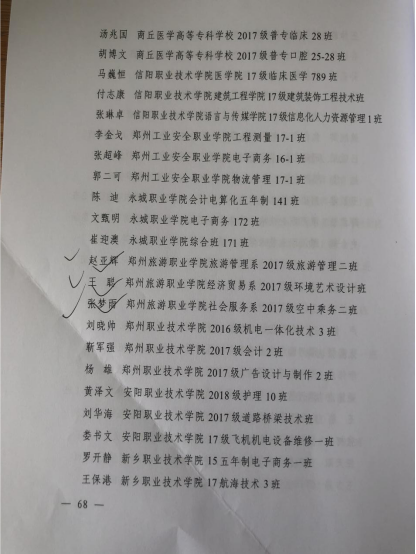 汤兆国 商丘医学高等专科学校 2017级普专临床 28班
胡博文 商丘医学高等专科学校 2017级普专口腔 25-28班
马巍恒 信阳职业技术学院医学院 17级临床医学 789班
付志康 信阳职业技术学院建筑工程学院17级建筑装饰工程技术班
张琳卓 信阳职业技术学院语言与传媒学院17级信息化人力资源管理1班
李金戈 郑州工业安全职业学院工程测量 17-1班
张超峰 郑州工业安全职业学院电子商务 16-1班
郭二可 郑州工业安全职业学院物流管理 17-1班
陈 迪 永城职业学院会计电算化五年制 141班
文甄明 永城职业学院电子商务 172班
崔迎澳 永城职业学院综合班 171班
赵亚辉 郑州旅游职业学院旅游管理系 2017级旅游管理二班
王 聪 郑州旅游职业学院经济贸易系 2017级环境艺术设计班
张梦雨 郑州旅游职业学院社会服务系 2017级空中乘务二班
刘晓帅 郑州职业技术学院 2016级机电一体化技术 3班
靳军强 郑州职业技术学院 2017级会计 2班
杨 雄 郑州职业技术学院 2017级广告设计与制作 2班
黄泽文 安阳职业技术学院 2018级护理 10班
刘华海 安阳职业技术学院 2017级道路桥梁技术班
娄书文 安阳职业技术学院 17级飞机机电设备维修一班
罗开静 新乡职业技术学院 15五年制电子商务一班
王保港 新乡职业技术学院 17航海技术 3班
— 68 —